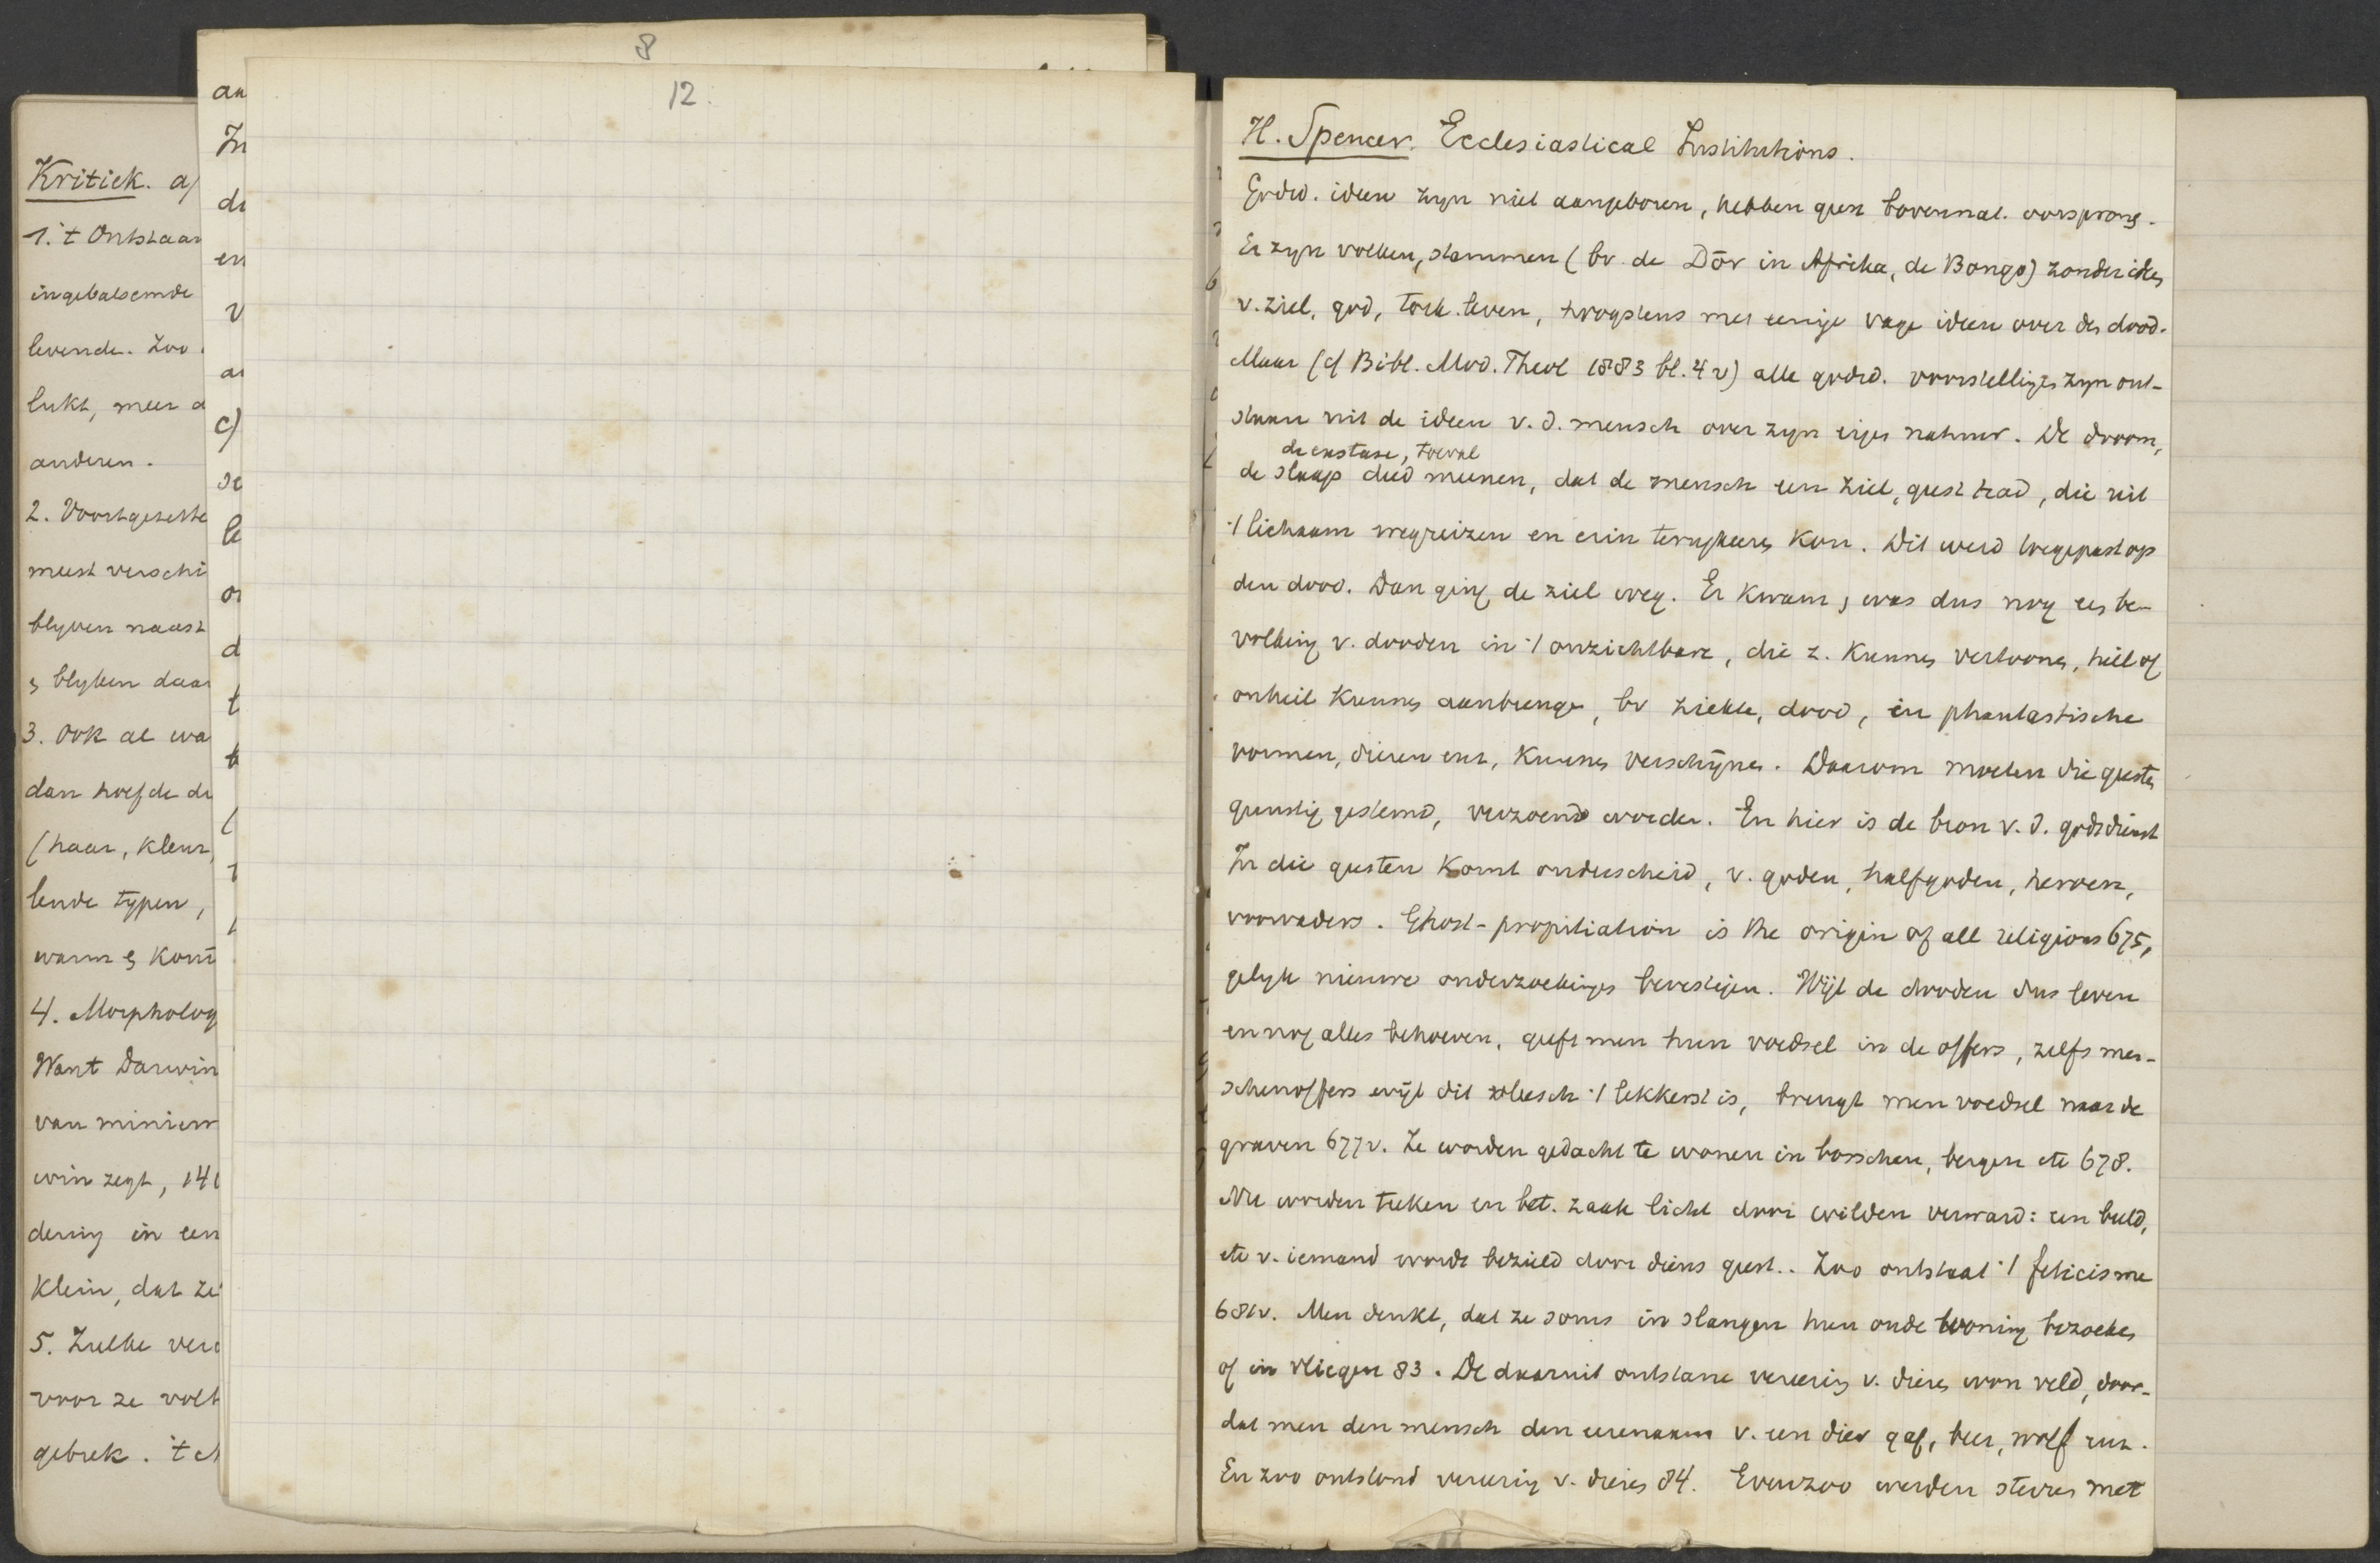 8
12.
Kritiek. a)
1. 't Ontstaan
ingebalsemde
levende. Zoo
lukt, meer
anderen.
2. Voortgezette
meest verschi
blyven naast
blyken daar
3. Ook al wa
dan hoefde de
(haar, kleur,
lende typen,
warm & kom
4. Morpholog
Want Darwin
van miniem
win zegt, 141
dering in een
klein, dat ze
5. Zulke vera
voor ze volk
gebrek. 't
an
In
de
en
v
a
c)
se
le
o
d
t
H. Spencer. Ecclesiastical Institutions.
Godsd. ideen zyn niet aangeboren, hebben geen bovennat. oorsprong.
Er zyn volken, stammen (bv. de Dōr in Afrika, de Bongo) zonder idee
v. ziel, god, toek. leven, hoogstens met eenige vage ideen over de dood.
Maar (cf Bibl. Mod. Theol 1883 bl. 4 v) alle godsd. voorstellingen zyn ont-
staan uit de ideen v. d. mensch over zyn eigen natuur. De droom,
de exstase, toeval
de slaap deed meenen, dat de mensch een ziel, geest had, die uit
't lichaam wegreizen en erin terugkeeren kon. Dit werd toegepast op
den dood. Dan ging de ziel weg. Er kwam, was dus nog een be-
volking v. dooden in 't onzichtbare, die z. kunnen vertoonen, heil of
onheil kunnen aanbrengen, bv ziekte, dood, in phantastische
vormen, dieren enz, kunnen verschynen. Daarom moeten die geesten
gunstig gestemd, verzoend worden. En hier is de bron v. d. godsdienst
In die geesten komt onderscheid, v. goden, halfgoden, heroen,
voorvaders. Ghost-propitiation is the origin of all religions 675,
gelyk nieuwe onderzoekingen bevestigen. Wijl de dooden dus leven
en nog alles behoeven, geeft men hun voedsel in de offers, zelfs men-
schenoffers wijl dit vleesch 't lekkerst is, brengt men voedsel naar de
graven 677v. Ze worden gedacht te wonen in bosschen, bergen etc 678.
Nu worden teeken en bet. zaak licht door wilden verward: een beeld,
etc v. iemand wordt bezield door diens geest. Zoo ontstaat 't feticisme
681v. Men denkt, dat ze soms in slangen hun oude woning bezoeken
of in vliegen 83. De daaruit ontstane vereering v. dieren won veld, door-
dat men den mensch den eerenaam v. een dier gaf, beer, wolf enz.
En zoo ontstond vereering v. dieren 84. Evenzoo werden sterren met